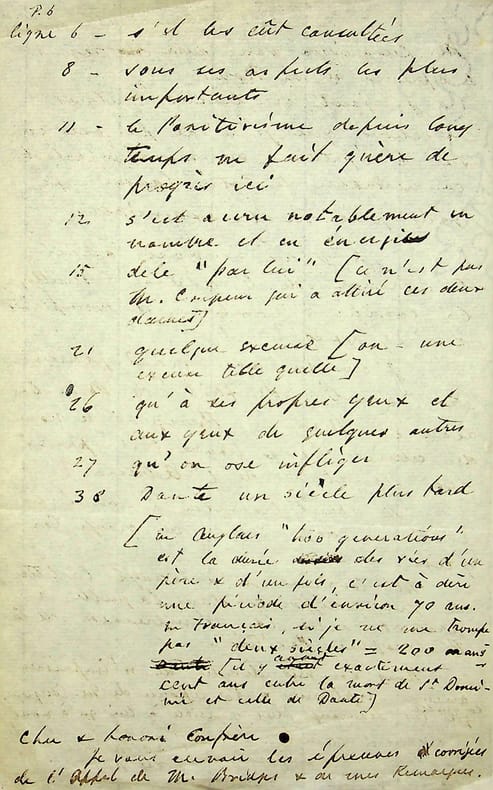 P. 6
ligne 6 - s'il les eût consultées
8 - sous ses aspects les plus
importants
11 - le Positivisme depuis long
temps ne fait guère de
progrès ici
12 s'est accru notablement en
nombre et en énergie
15 dele "par lui" [ce n'est pas
M. Crompton qui a attiré ces deux
dames]
21 quelque excuse [ou - une
excuse telle quelle]
26 qu'à ses propres yeux et
aux yeux de quelques autres
27 qu'on ose infliger
38 Dante un siècle plus tard
[en Anglais "two generations"
est la durée des vies d'un
père & d'un fils, c'est à dire
une période d'environ 70 ans.
en français, si je ne me trompe
pas "deux siècles" = 200 ans
[il y a exactement
cent ans entre la mort de St Domi-
nic et celle de Dante]
Cher & honoré Confrère
Je vous envoie les épreuves corrigées
de l'Appel de M. Bridges & de mes Remarques.